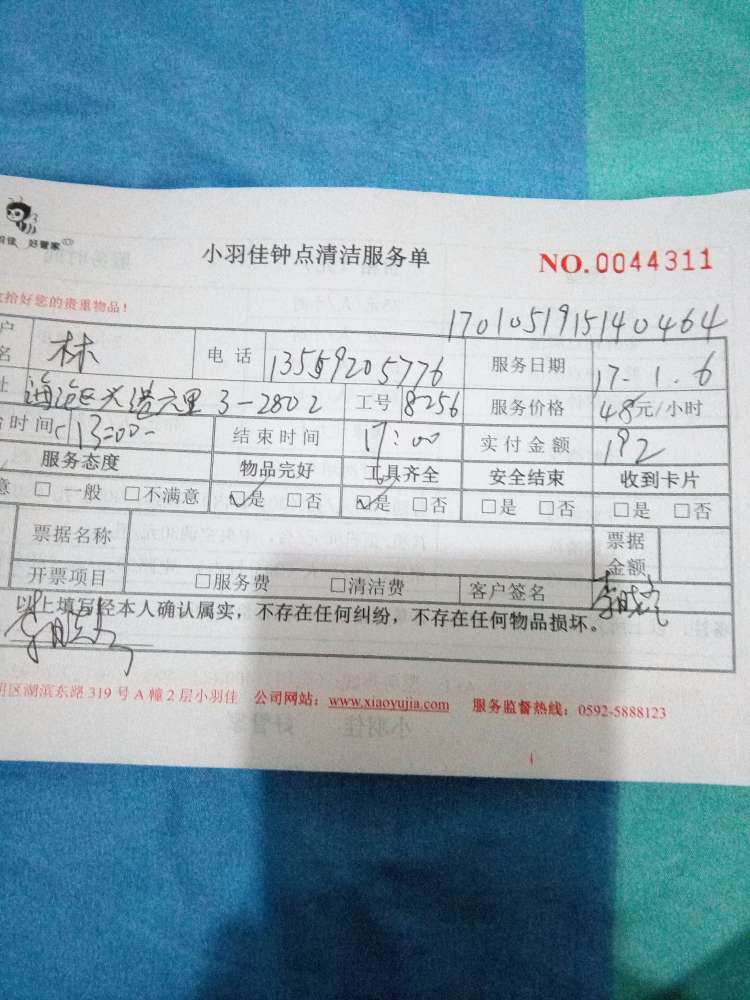 好管家
小羽佳钟点清洁服务单 NO.0044311
拾好您的贵重物品!
1701051915140464
户名 林 电话 13559205776 服务日期 17.1.6
址 海沧区兴港六里3-2802 工号 8256 服务价格 48元/小时
时间 13:00 结束时间 17:00 实付金额 192
服务态度 物品完好 工具齐全 安全结束 收到卡片
意 □一般 □不满意 ☑是 □否 ☑是 □否 □是 □否 □是 □否
票据名称 票据金额
开票项目 □服务费 □清洁费 客户签名
以上填写经本人确认属实，不存在任何纠纷，不存在任何物品损坏。
区湖滨东路319号A幢2层小羽佳 公司网站：www.xiaoyujia.com 服务监督热线：0592-5888123